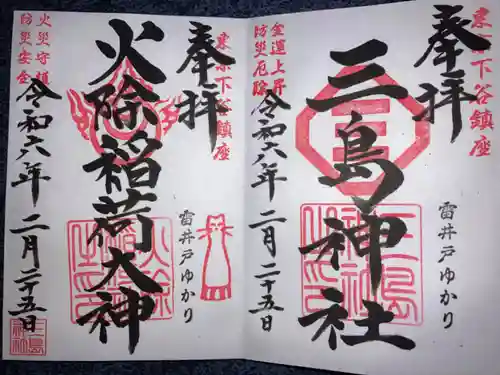 東京下谷鎮座
奉拝
三島神社
雷井戸ゆかり
金運上昇
防災厄除
令和六年 二月二十五日
東京下谷鎮座
奉拝
火除稲荷大神
雷井戸ゆかり
火災守護
防災安全
令和六年 二月二十五日